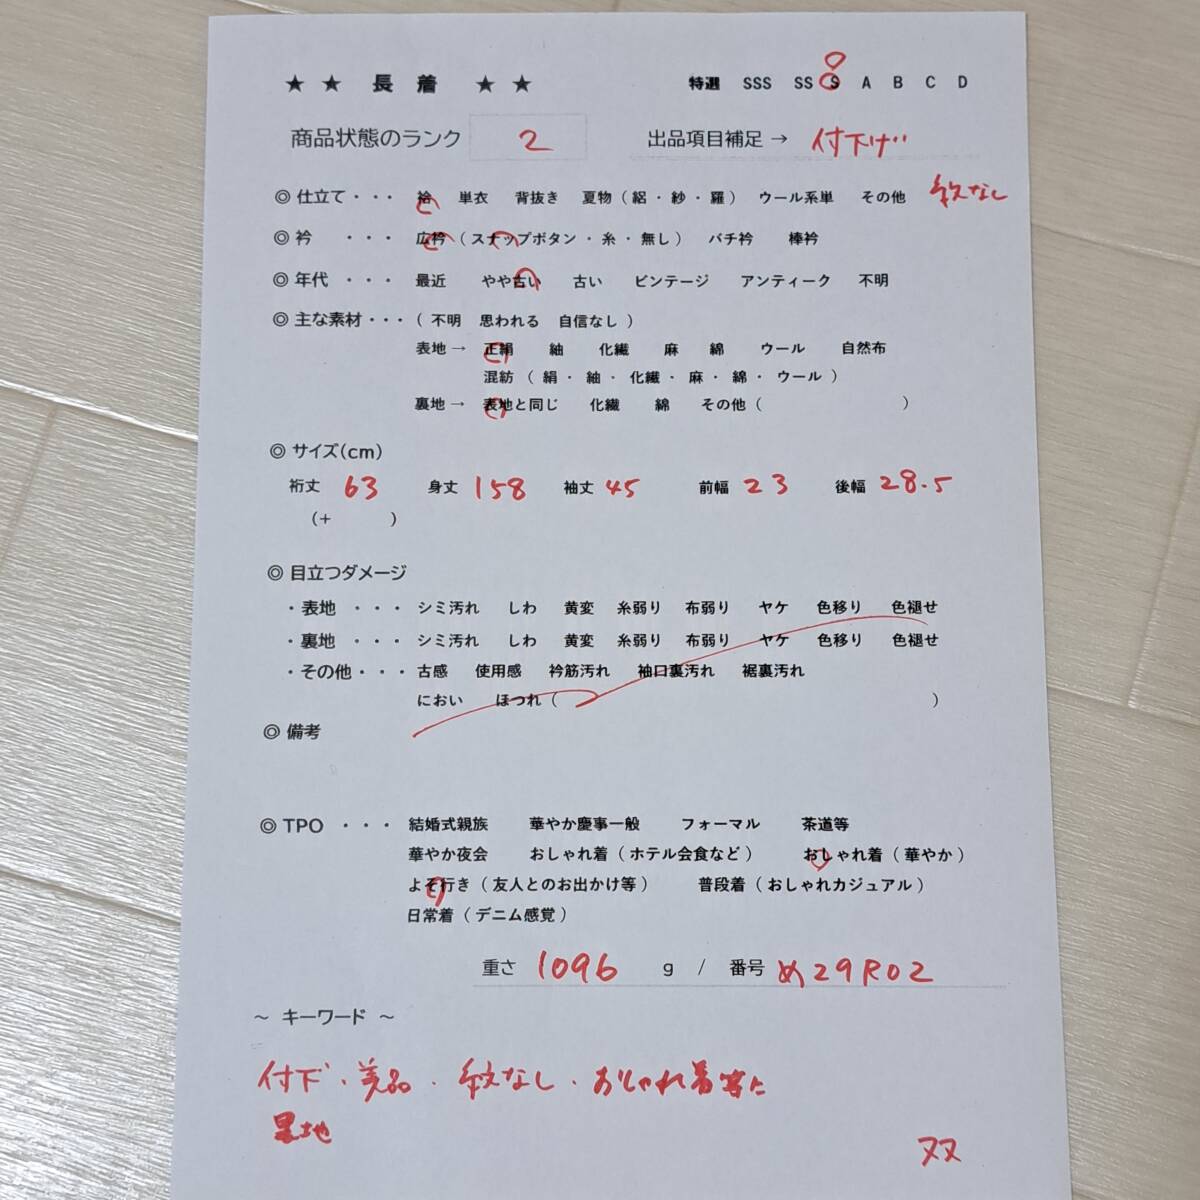 ★ ★ 長 着 ★ ★ 特選 SSS SS S A B C D
商品状態のランク 2 出品項目補足 → 付下げ
◎ 仕立て ・・・ 袷 単衣 背抜き 夏物 ( 絽 ・ 紗 ・ 羅 ) ウール系単 その他 紋なし
◎ 衿 ・・・ 広衿 ( スナップボタン ・ 糸 ・ 無し ) バチ衿 棒衿
◎ 年代 ・・・ 最近 やや古い 古い ビンテージ アンティーク 不明
◎ 主な素材 ・・・ ( 不明 思われる 自信なし )
表地 → 正絹 紬 化繊 麻 綿 ウール 自然布
混紡 ( 絹 ・ 紬 ・ 化繊 ・ 麻 ・ 綿 ・ ウール )
裏地 → 表地と同じ 化繊 綿 その他 ( )
◎ サイズ(cm)
裄丈 63 身丈 158 袖丈 45 前幅 23 後幅 28.5
(+ )
◎ 目立つダメージ
・表地 ・・・ シミ汚れ しわ 黄変 糸弱り 布弱り ヤケ 色移り 色褪せ
・裏地 ・・・ シミ汚れ しわ 黄変 糸弱り 布弱り ヤケ 色移り 色褪せ
・その他 ・・・ 古感 使用感 衿筋汚れ 袖口裏汚れ 裾裏汚れ
におい ほつれ ( )
◎ 備考
◎ TPO ・・・ 結婚式親族 華やか慶事一般 フォーマル 茶道等
華やか夜会 おしゃれ着 ( ホテル会食など ) おしゃれ着 ( 華やか )
よそ行き ( 友人とのお出かけ等 ) 普段着 ( おしゃれカジュアル )
日常着 ( デニム感覚 )
重さ 1096 g / 番号 め29R02
～ キーワード ～
付下・美品・紋なし・おしゃれ着等に
黒地